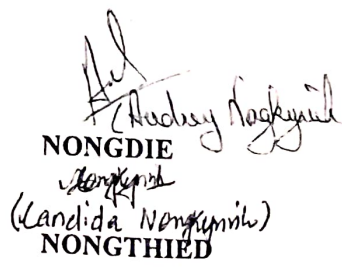 (Audrey Nongkynrih
NONGDIE
Nongkynrih
(Candida Nongkynrih)
NONGTHIED